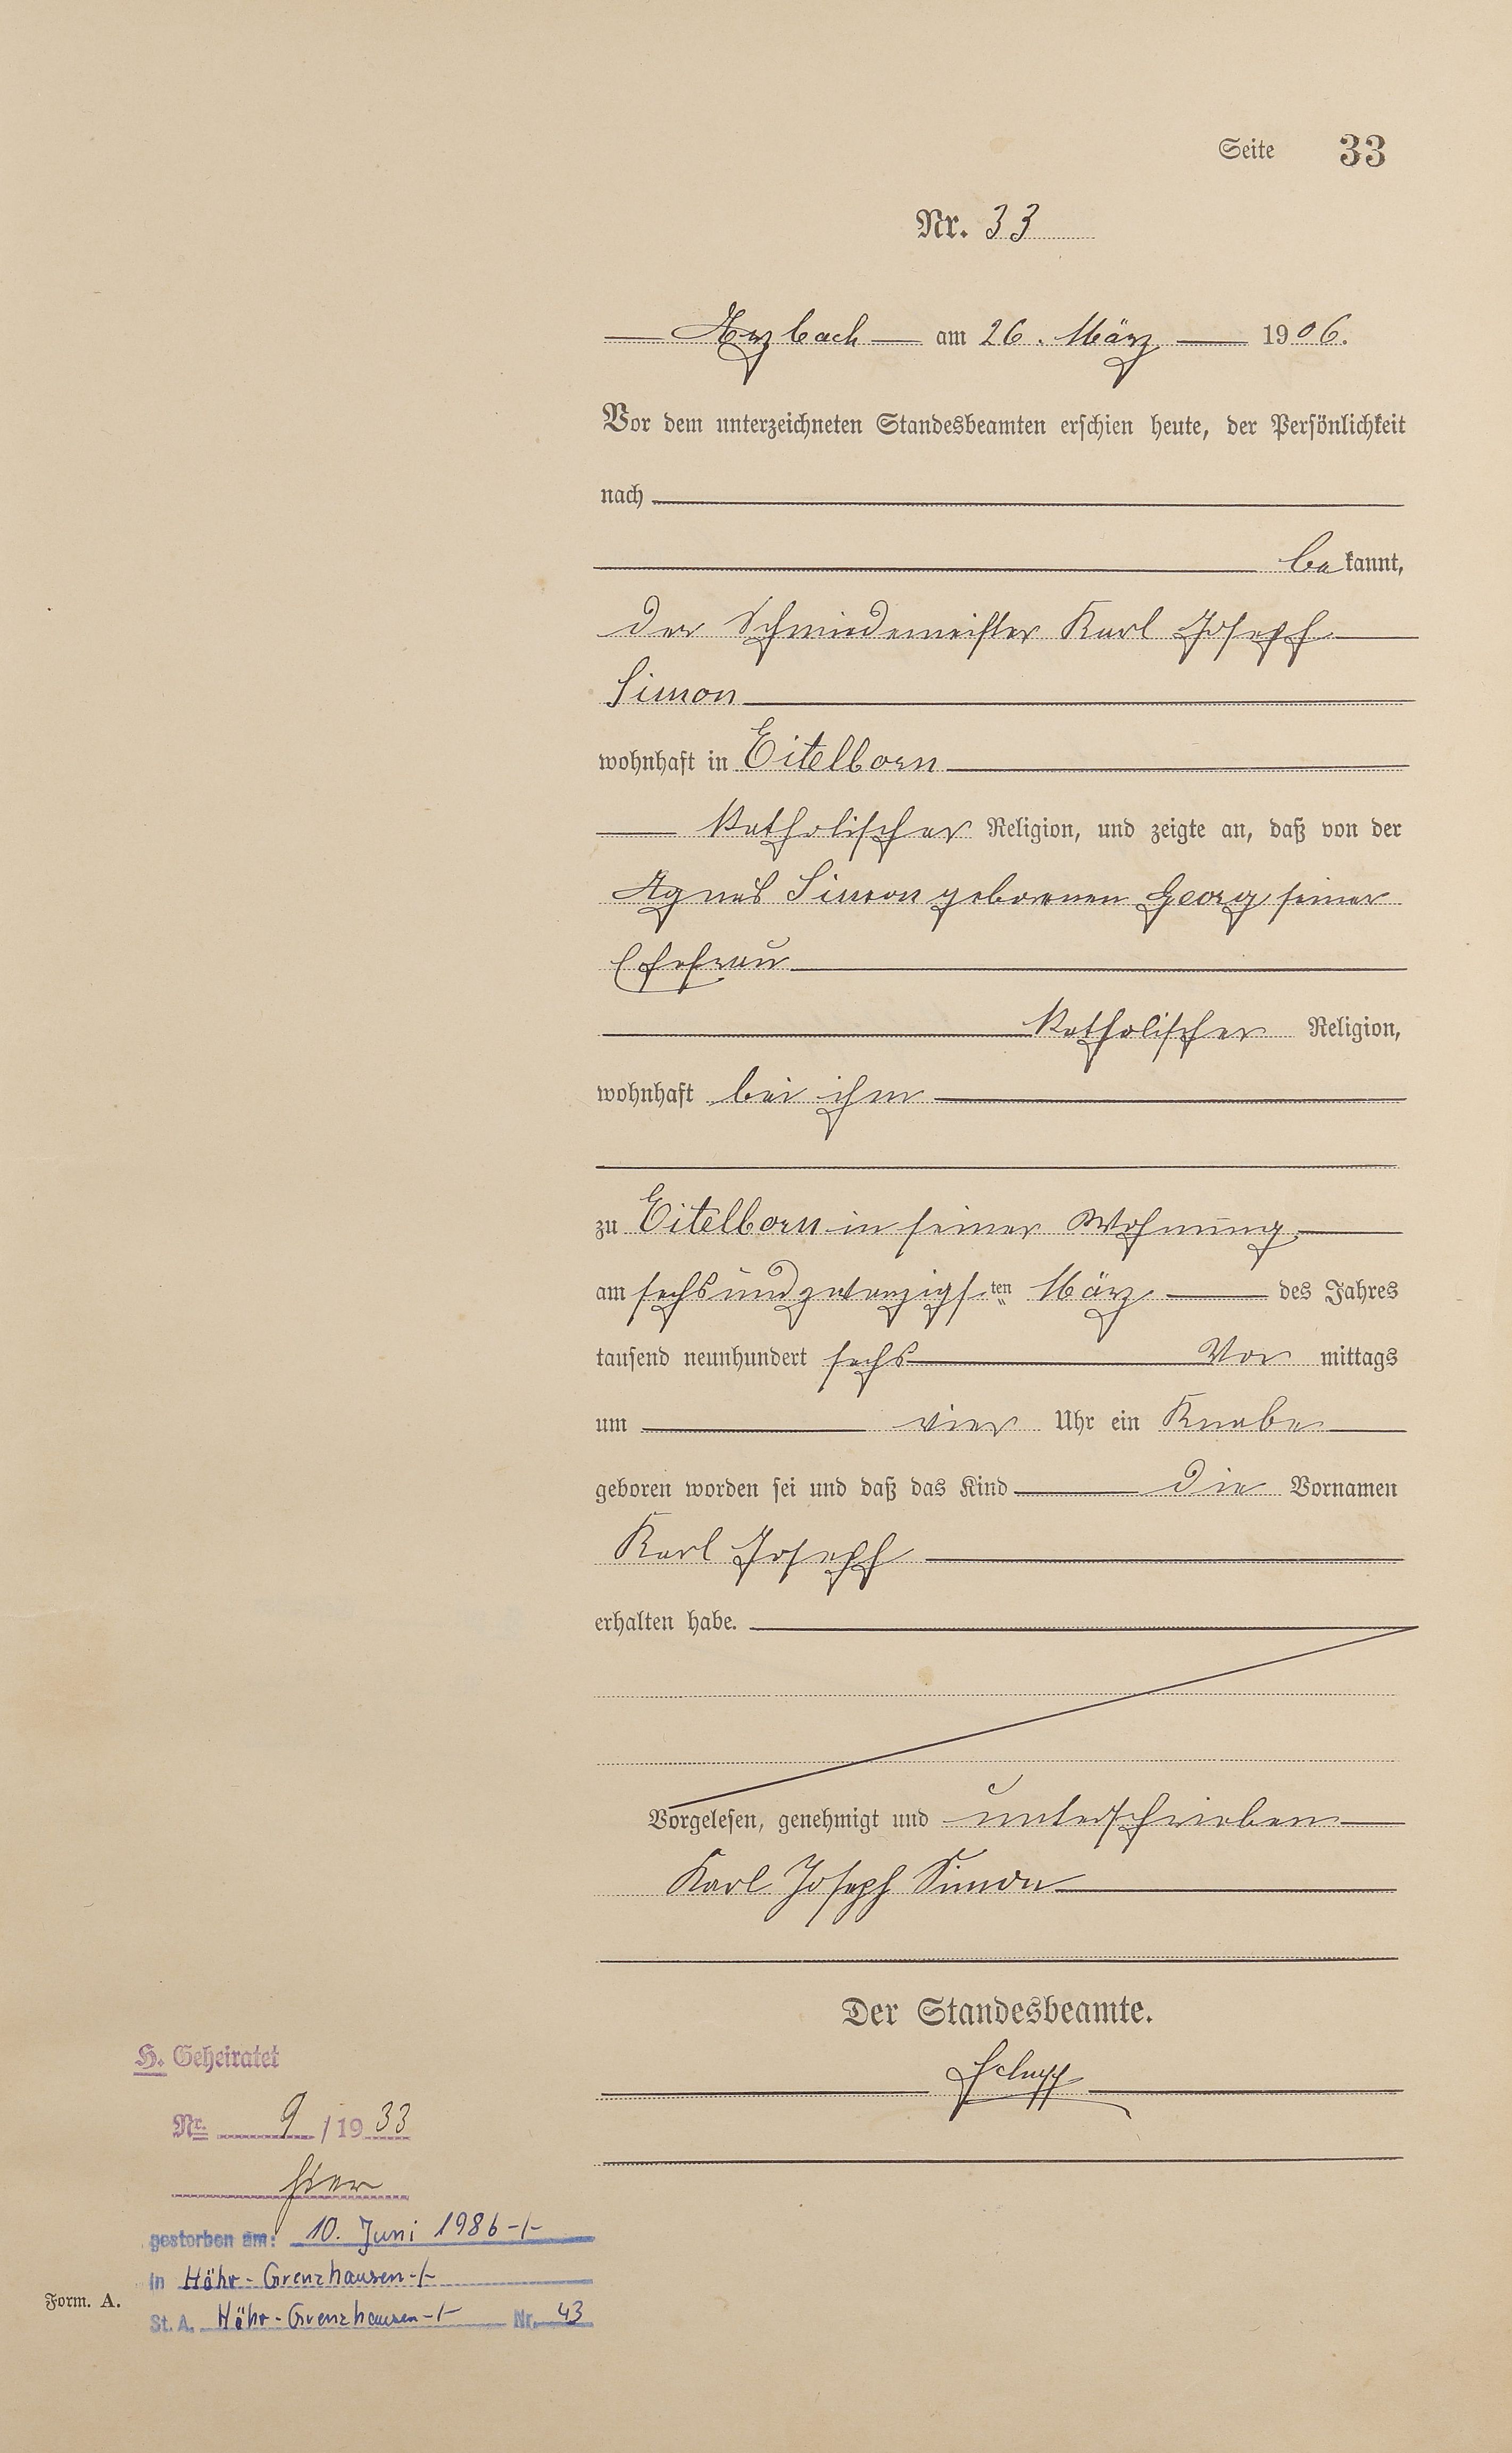 Seite 33
Nr. 33
Arzbach am 26. März 1906.
Vor dem unterzeichneten Standesbeamten erschien heute, der Persönlichkeit
nach
bekannt,
der Schmiedemeister Karl Joseph
Simon
wohnhaft in Eitelborn
katholischer Religion, und zeigte an, daß von der
Agnes Simon geborenen Georg seiner
Ehefrau
katholischer Religion,
wohnhaft bei ihm
zu Eitelborn in seiner Wohnung
am sechsundzwanzigsten März des Jahres
tausend neunhundert sechs Vor mittags
um vier Uhr ein Knabe
geboren worden sei und daß das Kind die Vornamen
Karl Joseph
erhalten habe.
Vorgelesen, genehmigt und unterschrieben
Karl Joseph Simon
Der Standesbeamte.
Schupp
H. Geheiratet
Nr. 9/1933
hier
gestorben am: 10. Juni 1986
in Höhr-Grenzhausen
St. A. Höhr-Grenzhausen Nr. 43
Form. A.